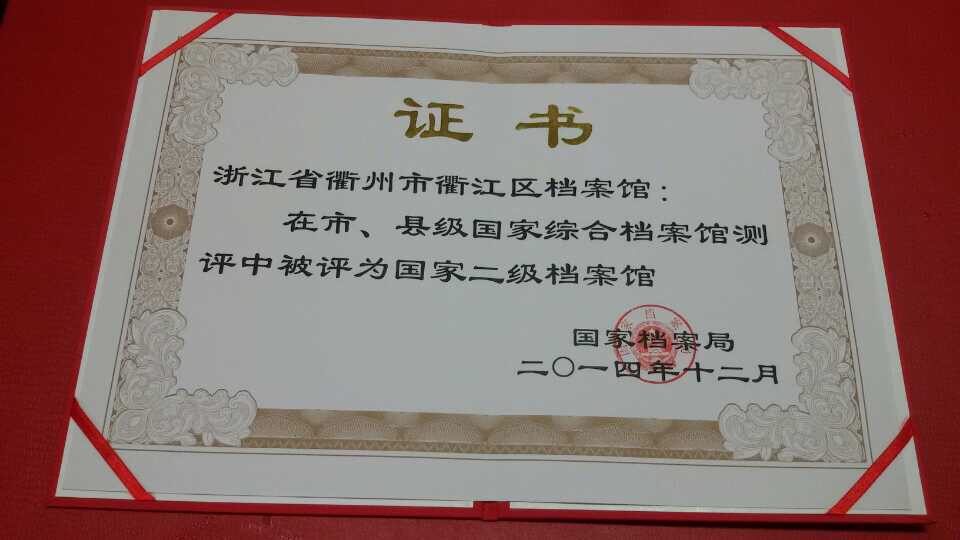 证书
浙江省衢州市衢江区档案馆：
在市、县级国家综合档案馆测
评中被评为国家二级档案馆
国家档案局
二〇一四年十二月